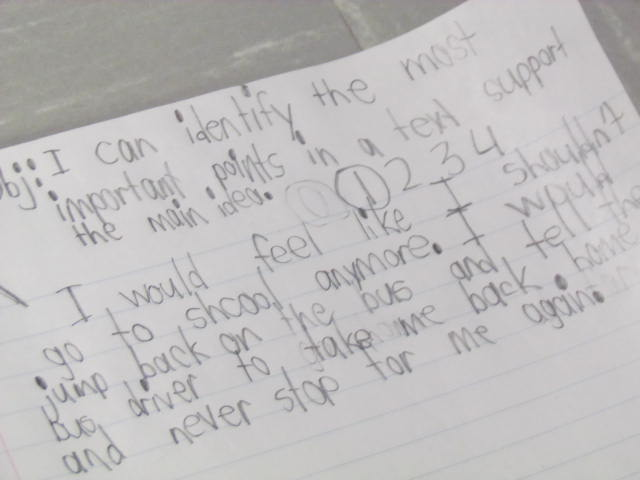 obj: I can identify the most
important points in a text support
the main idea. 0 1 2 3 4
I would feel like I shouldn't
go to shcool anymore. I would
jump back on the bus and tell the
bus driver to take me back home
and never stop for me again.